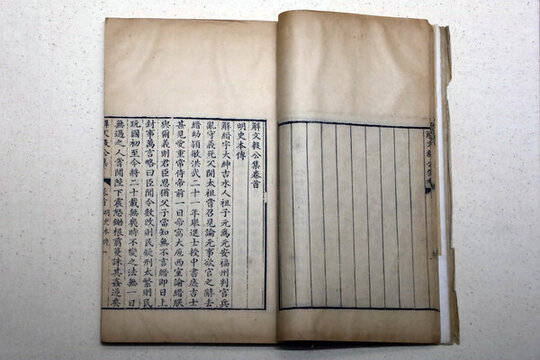 解文毅公集卷首
明史本傳
解縉字大紳吉水人祖子元為元安福州判官兵
亂守義死父開太祖嘗召見論元事欲官之辭去
縉幼穎敏洪武二十一年舉進士授中書庶吉士
甚見愛重常侍帝前一日帝寓大庖西室諭縉朕
與爾義則君臣恩猶父子當知無不言縉即日上
封事萬言略曰臣聞令數改則民疑刑太繁則民
玩國初至今將二十載無幾時不變之法無一日
無過之人嘗聞陛下震怒鋤根翦蔓誅其姦逆矣
解文毅公集
卷首 明史本傳 一